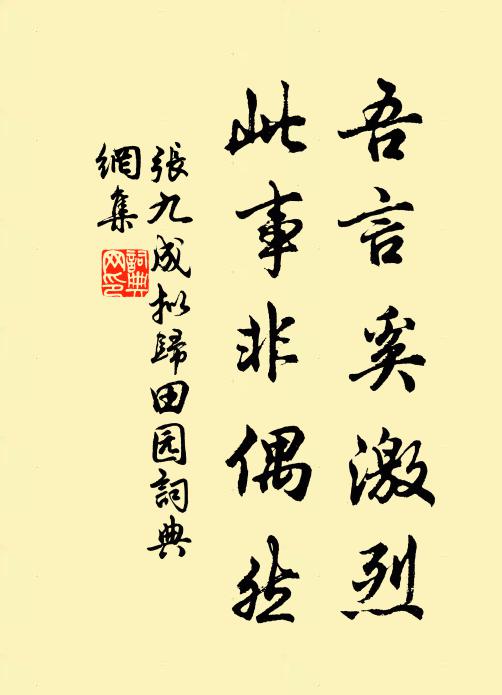 吾言奚激烈
此事非偶然
張九成拟歸田园詞典
網集
詞典
网印